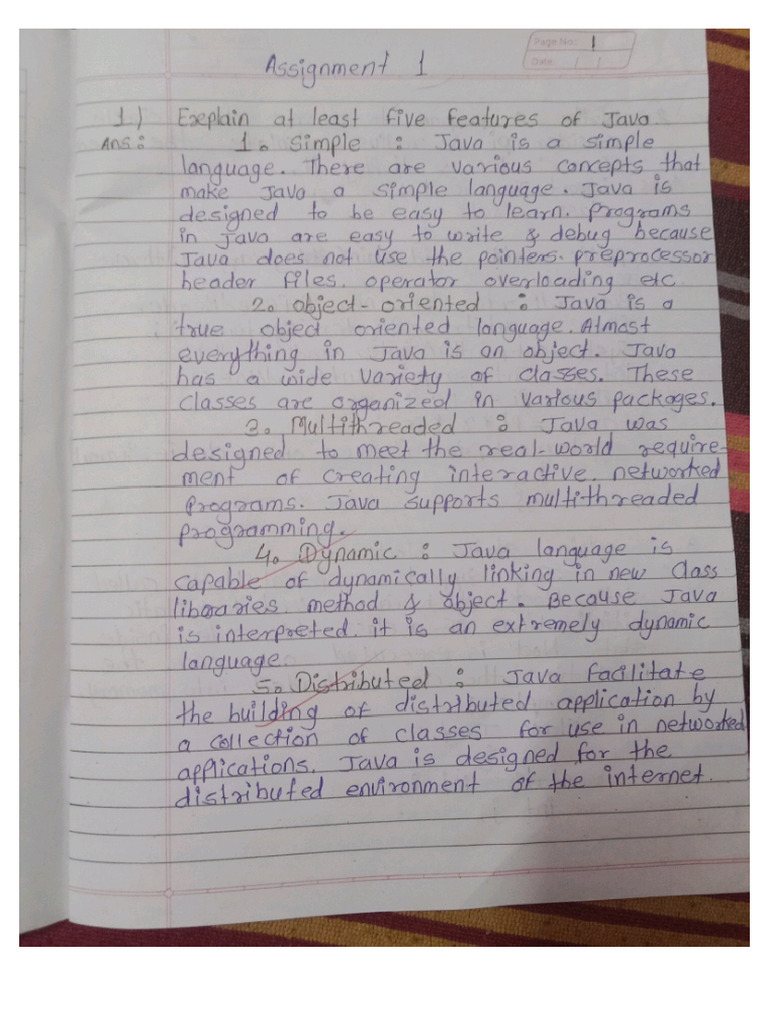 Page No.: 1
Date: / /
Assignment 1
1) Exeplain at least five features of Java
Ans: 1. Simple : Java is a simple
language. There are various concepts that
make Java a simple language. Java is
designed to be easy to learn. Programs
in Java are easy to write & debug because
Java does not use the pointers. preprocessor
header files. operator overloading etc
2. object-oriented : Java is a
true object oriented language. Almast
everything in Java is an object. Java
has a wide variety of classes. These
classes are organized in various packages.
3. Multithreaded : Java was
designed to meet the real-world require-
ment of creating interactive. networked
Programs. Java supports multithreaded
programming.
4. Dynamic : Java language is
capable of dynamically linking in new class
libraries. method & object. Because Java
is interpreted. it is an extremely dynamic
language.
5. Distributed : Java facilitate
the building of distributed application by
a collection of classes for use in networked
applications. Java is designed for the
distributed environment of the internet.